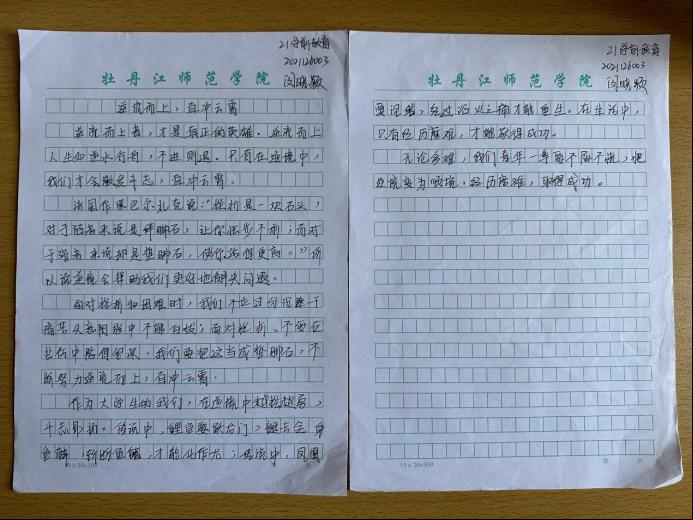 21学前教育
202126003
牡丹江师范学院
闵晓颖
逆流而上，直冲云霄
逆流而上者，才是真正的英雄。逆流而上
人生如逆水行舟，不进则退。只有在逆境中，
我们才会激发斗志，直冲云霄。
法国作家巴尔扎克说："挫折是一块石头，
对于弱者来说是绊脚石，让你怯步不前；而对
于强者来说却是垫脚石，使你站得更高。"所
以说逆境会帮助我们更好地解决问题。
面对挫折和困难时，我们不应过分沉溺于
痛苦失意中不能自拔；面对挫折，不要在
我们要把这当成垫脚石，不
断努力逆流而上，直冲云霄。
作为大学生的我们，在逆境中越挫越勇，
斗志昂扬。传说中，鲤鱼要跃龙门，
才能化作龙；传说中，凤凰
15×20=300
第 页
21学前教育
202126003
牡丹江师范学院
闵晓颖
要涅槃，经过浴火之痛才能重生。在生活中，
只有经历磨难，才能获得成功。
无论多难，我们青年一辈要不屈不挠，把
逆境变为顺境，经历磨难，取得成功。
15×20=300
第 页